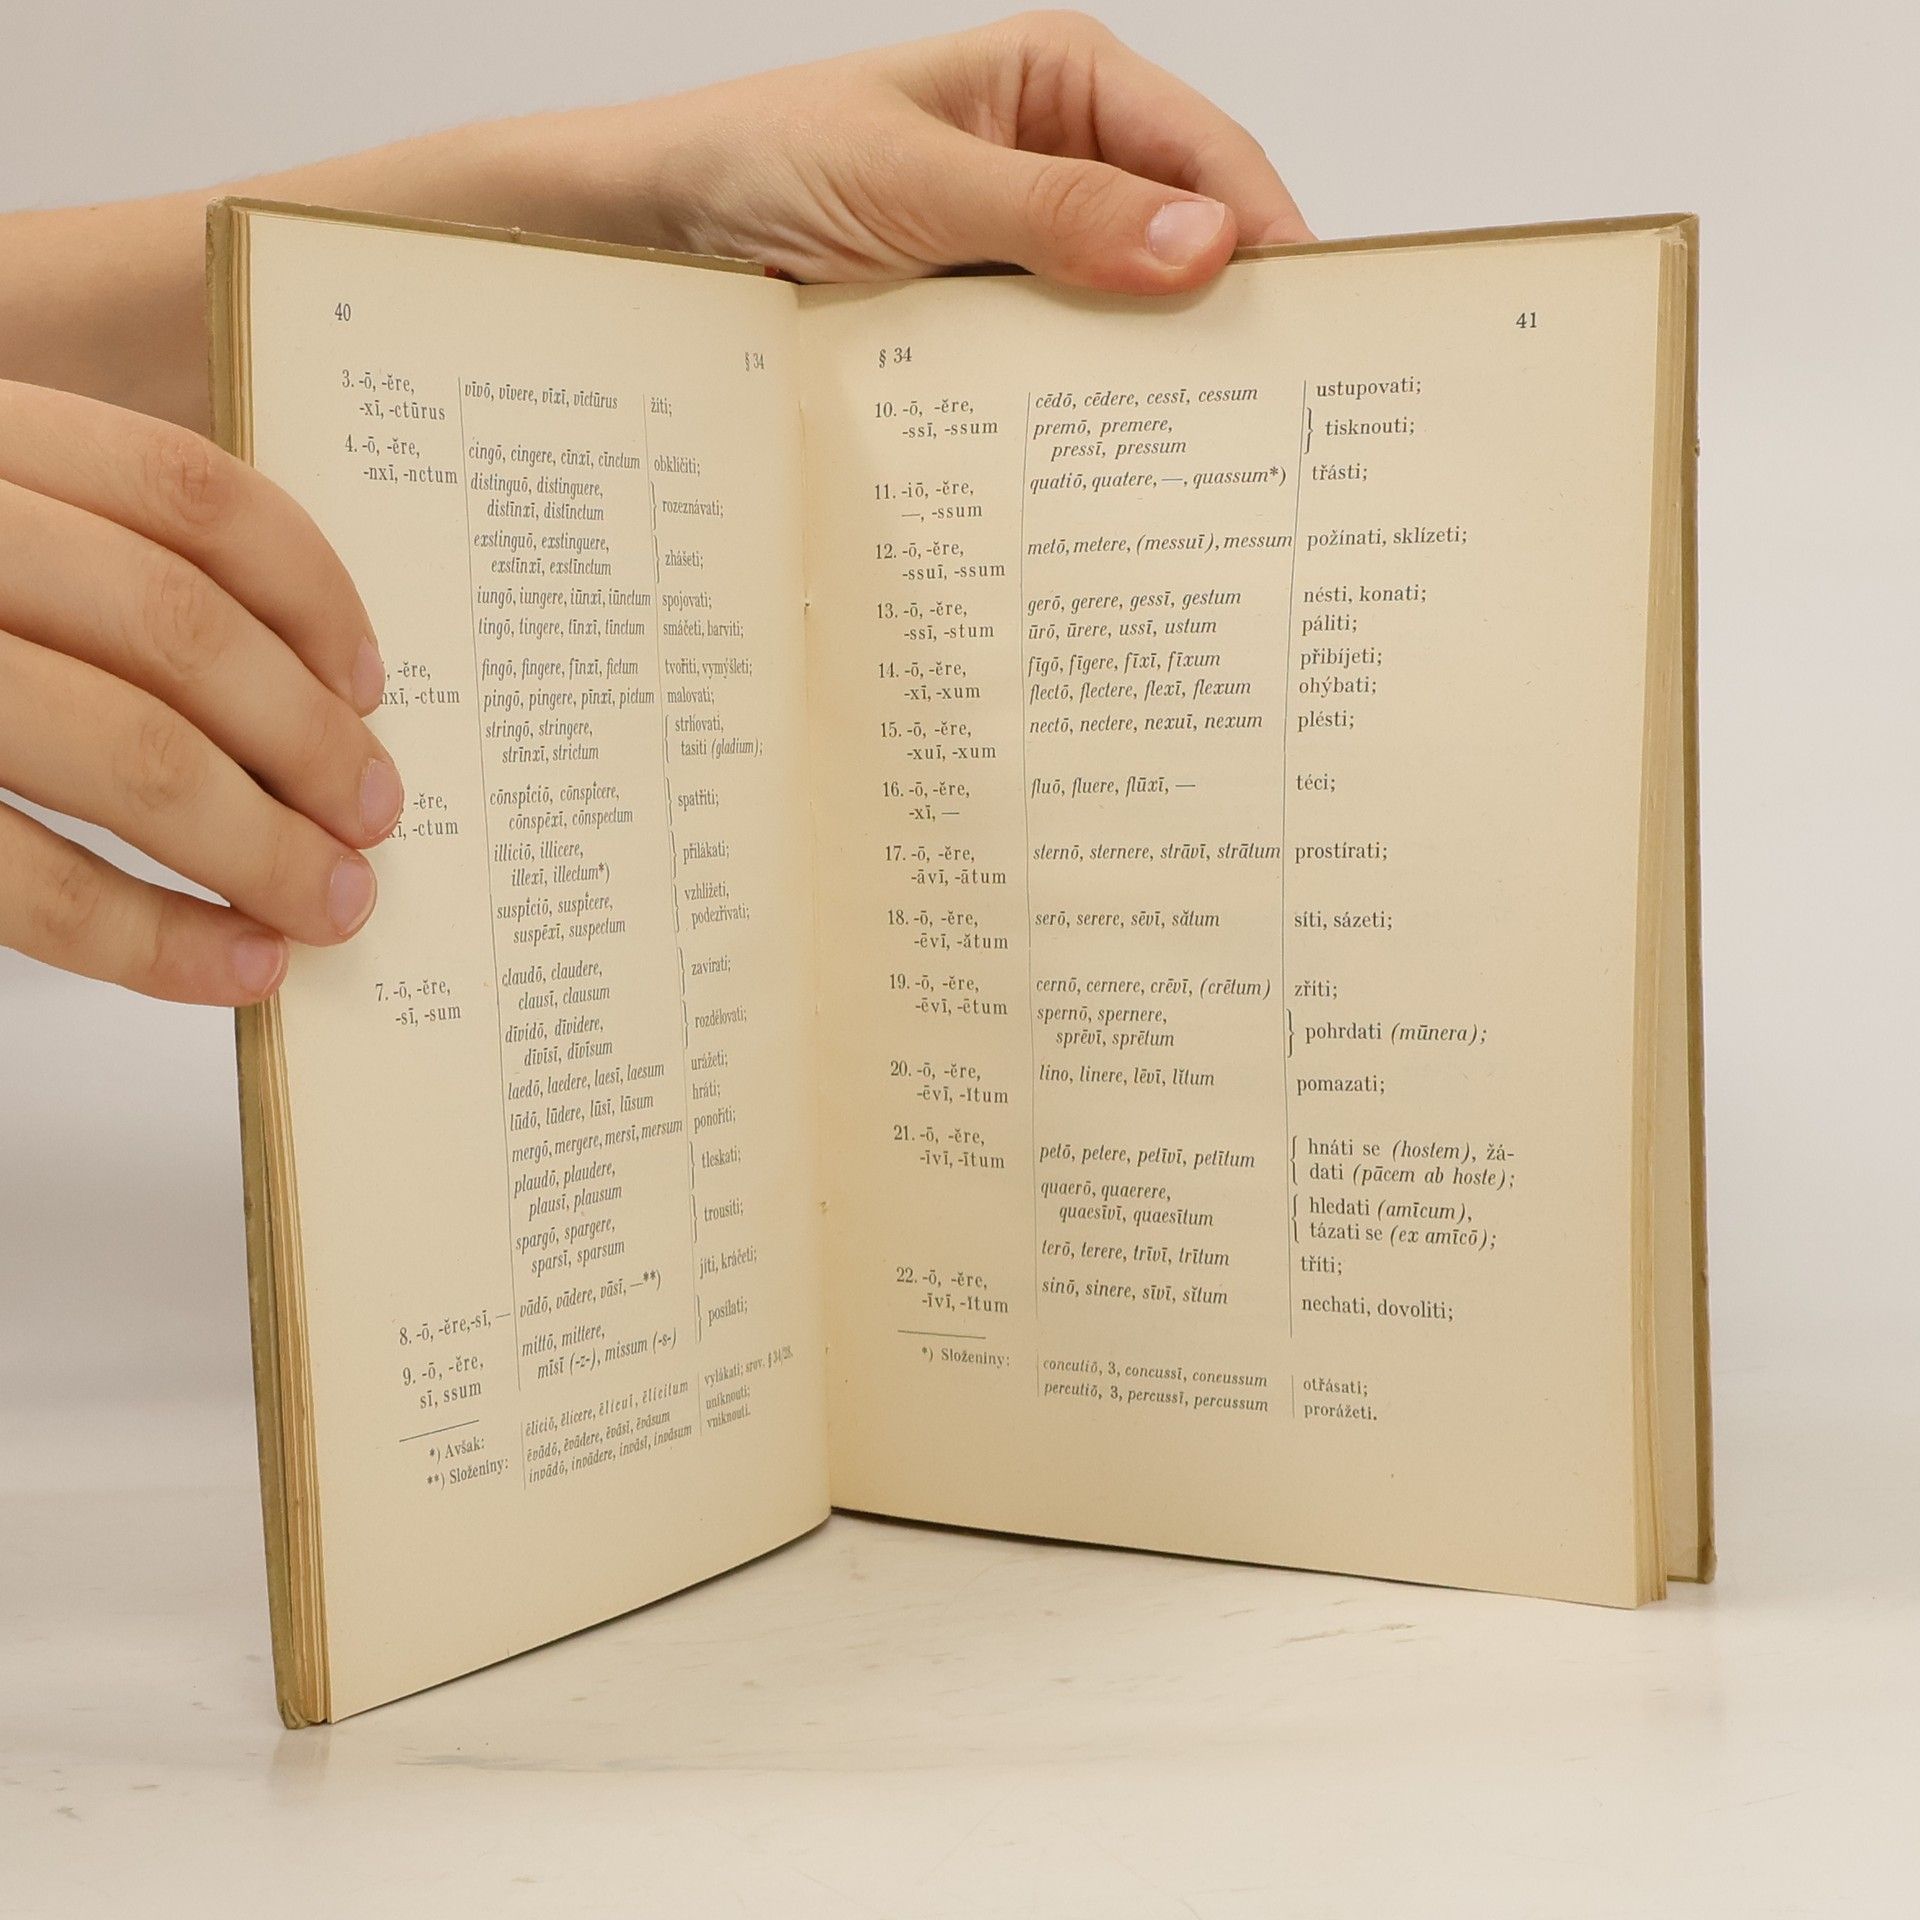 40
§ 34
3. -ō, -ĕre, vīvō, vīvere, vīxī, vīctūrus žíti;
-xī, -ctūrus
4. -ō, -ĕre, cingō, cingere, cīnxī, cīnctum obkličiti;
-nxī, -nctum distinguō, distinguere,
distīnxī, distīnctum rozeznávati;
exstinguō, exstinguere,
exstīnxī, exstīnctum zhášeti;
iungō, iungere, iūnxī, iūnctum spojovati;
tingō, tingere, tīnxī, tīnctum smáčeti, barviti;
-ĕre, fingō, fingere, fīnxī, fictum tvořiti, vymýšleti;
-ctum pingō, pingere, pīnxī, pictum malovati;
stringō, stringere, strhovati,
strīnxī, strictum tasiti (gladium);
-ĕre, cōnspiciō, cōnspicere,
-ctum cōnspēxī, cōnspectum spatřiti;
illiciō, illicere,
illexī, illectum*) přilákati;
suspiciō, suspicere, vzhlížeti,
suspēxī, suspectum podezřívati;
7. -ō, -ĕre, claudō, claudere, zavírati;
-sī, -sum clausī, clausum
dīvidō, dīvidere,
dīvīsī, dīvīsum rozdělovati;
laedō, laedere, laesī, laesum urážeti;
lūdō, lūdere, lūsī, lūsum hráti;
mergō, mergere, mersī, mersum ponořiti;
plaudō, plaudere,
plausī, plausum tleskati;
spargō, spargere,
sparsī, sparsum trousiti;
8. -ō, -ĕre,-sī, — vādō, vādere, vāsī, —**) jíti, kráčeti;
9. -ō, -ĕre, mittō, mittere,
sī, ssum mīsī (-z-), missum (-s-) posílati;
*) Avšak: ēliciō, ēlicere, ēlicuī, ēlicitum vylákati; srov. § 34/28.
**) Složeniny: ēvādō, ēvādere, ēvāsī, ēvāsum uniknouti;
invādō, invādere, invāsī, invāsum vniknouti.
41
§ 34
10. -ō, -ĕre, cēdō, cēdere, cessī, cessum ustupovati;
-ssī, -ssum premō, premere,
pressī, pressum tisknouti;
11. -iō, -ĕre, quatiō, quatere, —, quassum*) třásti;
—, -ssum
12. -ō, -ĕre, metō, metere, (messuī), messum požínati, sklízeti;
-ssuī, -ssum
13. -ō, -ĕre, gerō, gerere, gessī, gestum nésti, konati;
-ssī, -stum ūrō, ūrere, ussī, ustum páliti;
14. -ō, -ĕre, fīgō, fīgere, fīxī, fīxum přibíjeti;
-xī, -xum flectō, flectere, flexī, flexum ohýbati;
15. -ō, -ĕre, nectō, nectere, nexuī, nexum plésti;
-xuī, -xum
16. -ō, -ĕre, fluō, fluere, flūxī, — téci;
-xī, —
17. -ō, -ĕre, sternō, sternere, strāvī, strātum prostírati;
-āvī, -ātum
18. -ō, -ĕre, serō, serere, sēvī, sătum síti, sázeti;
-ēvī, -ătum
19. -ō, -ĕre, cernō, cernere, crēvī, (crētum) zříti;
-ēvī, -ētum spernō, spernere,
sprēvī, sprētum pohrdati (mūnera);
20. -ō, -ĕre, lino, linere, lēvī, lĭtum pomazati;
-ēvī, -ĭtum
21. -ō, -ĕre, petō, petere, petīvī, petītum hnáti se (hostem), žá-
-īvī, -ītum dati (pācem ab hoste);
quaerō, quaerere, hledati (amīcum),
quaesīvī, quaesītum tázati se (ex amīcō);
terō, terere, trīvī, trītum tříti;
22. -ō, -ĕre, sinō, sinere, sīvī, sĭtum nechati, dovoliti;
-īvī, -ĭtum
*) Složeniny: concutiō, 3, concussī, concussum otřásati;
percutiō, 3, percussī, percussum prorážeti.